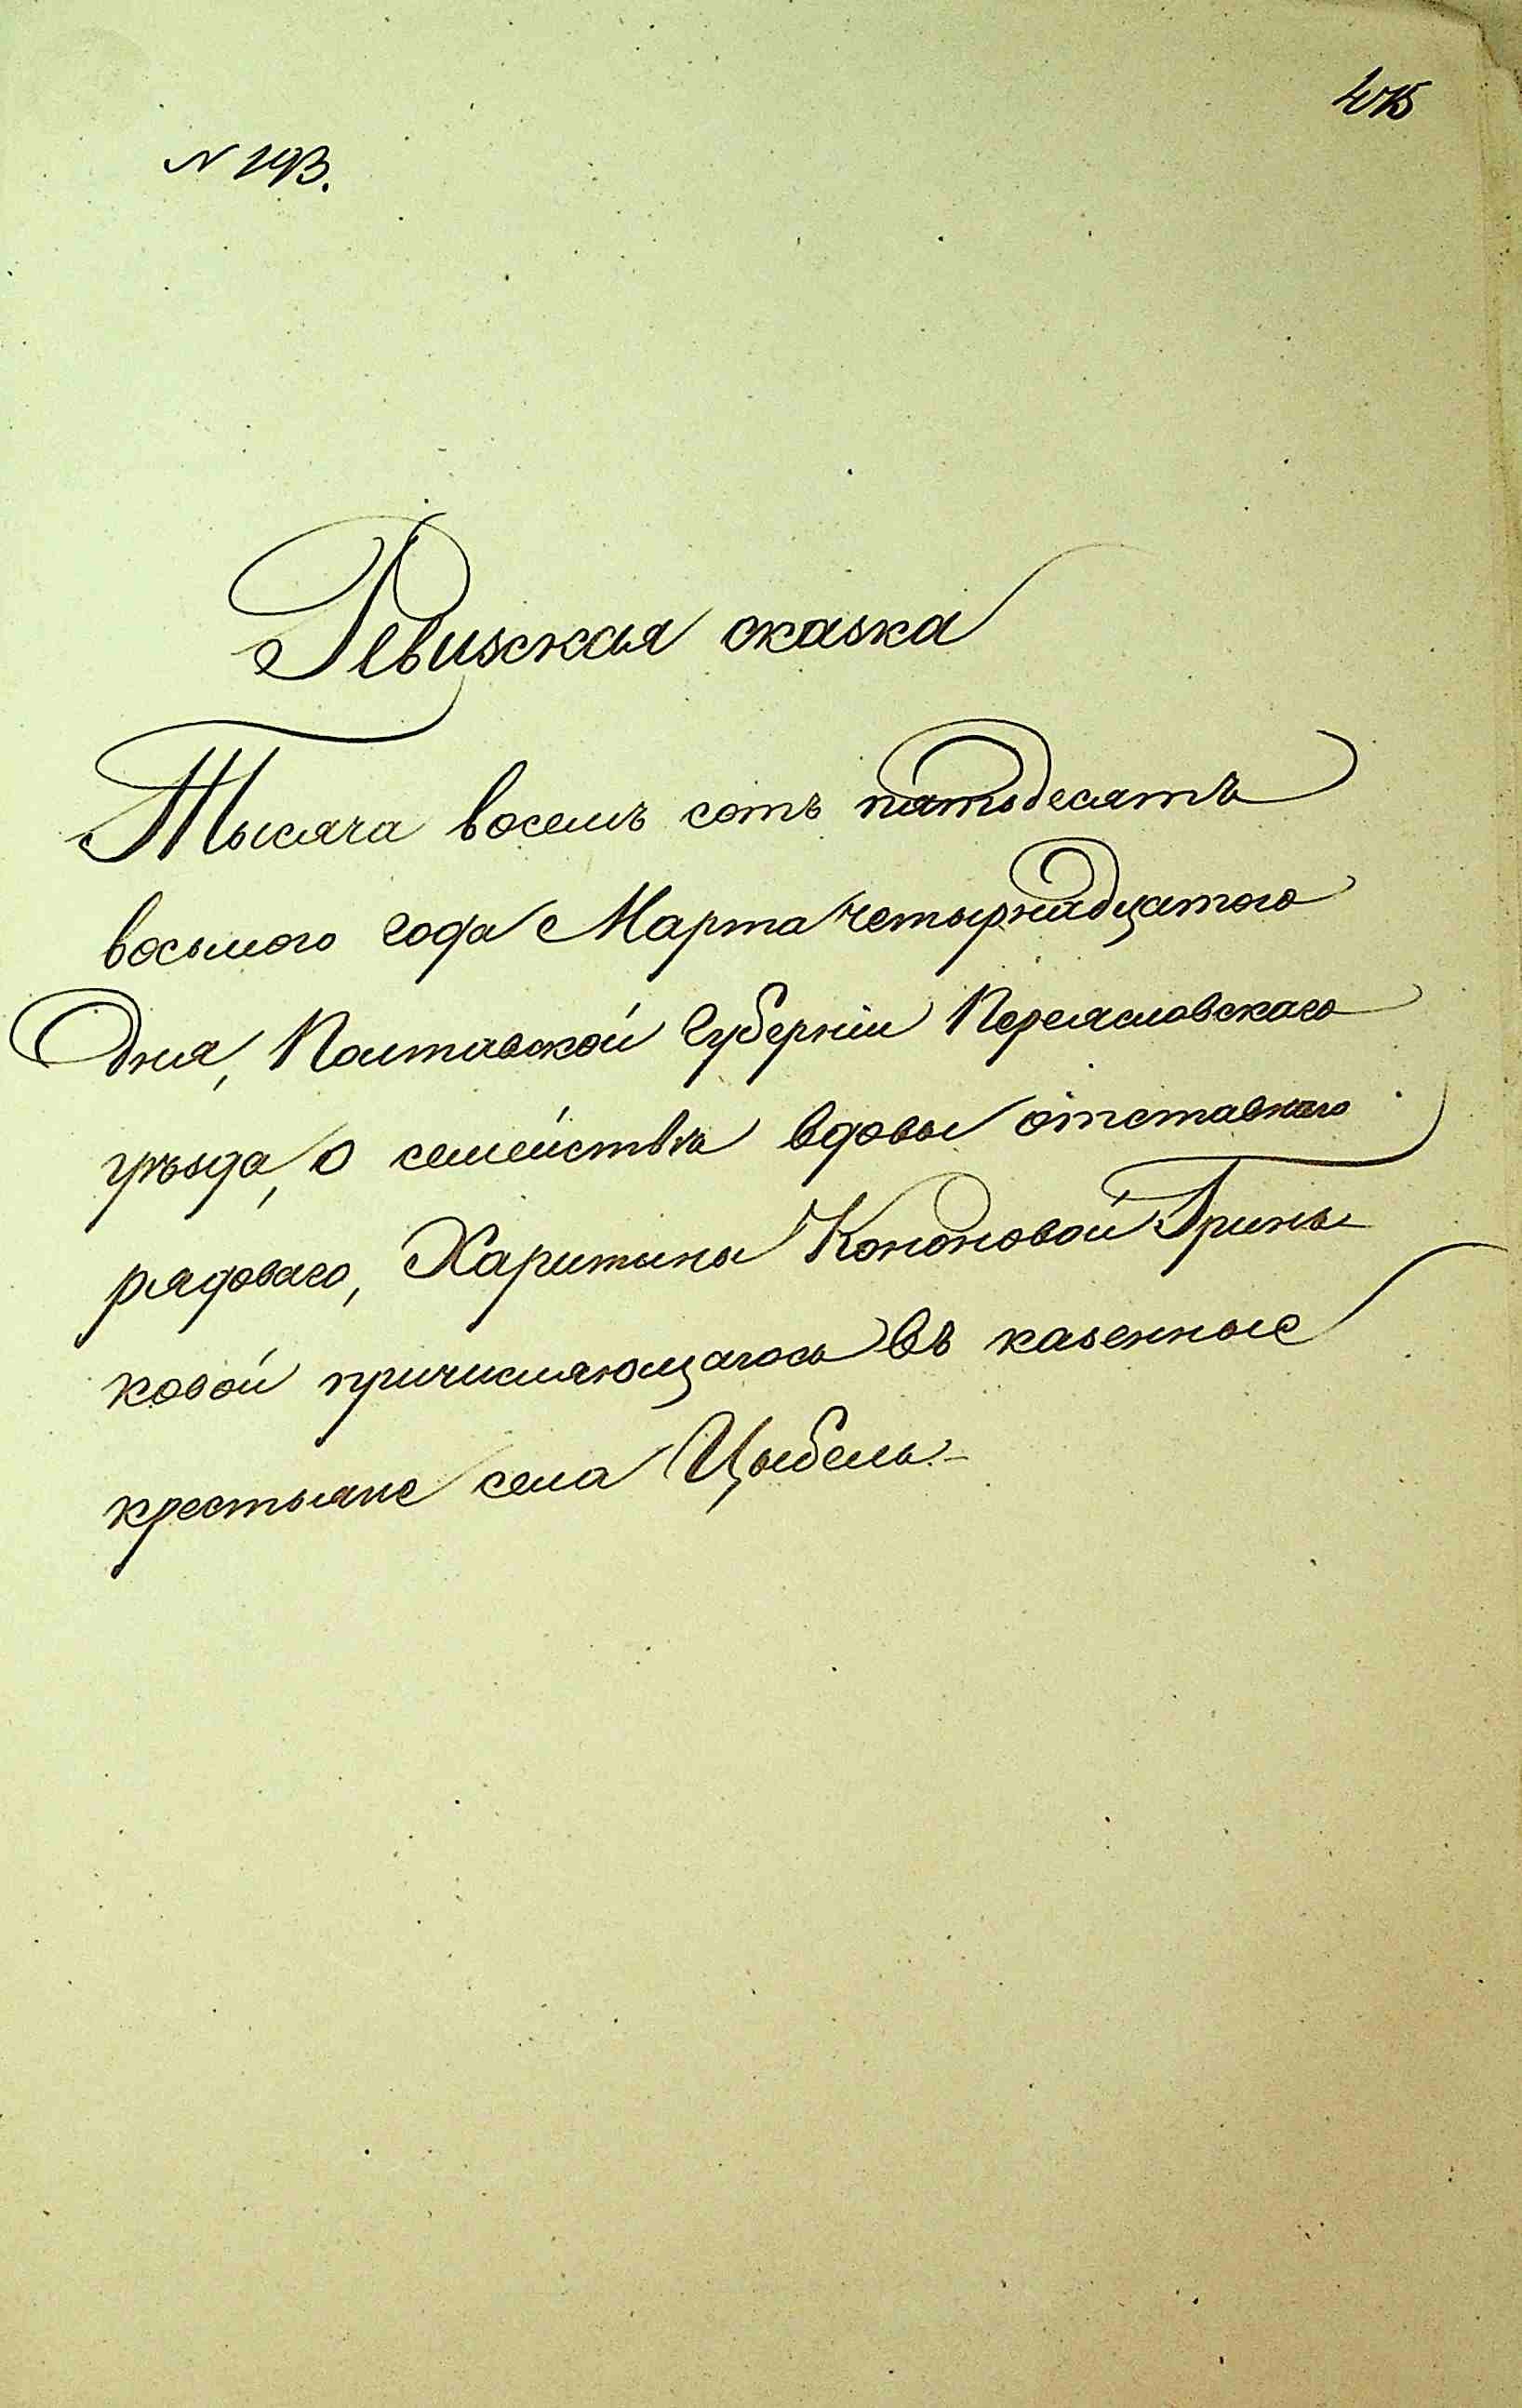 N 193.
Ревизская сказка
Тысяча восемъ сотъ пятьдесятъ
восьмого года Марта четырнадцатого
Дня, Полтавской Губерніи Переясловскаго
уѣзда, о семействѣ вдовы отставнаго
рядоваго, Харитины Кононовой Гринь
ковой причисляющагося въ казенные
крестьяне села Цыбель